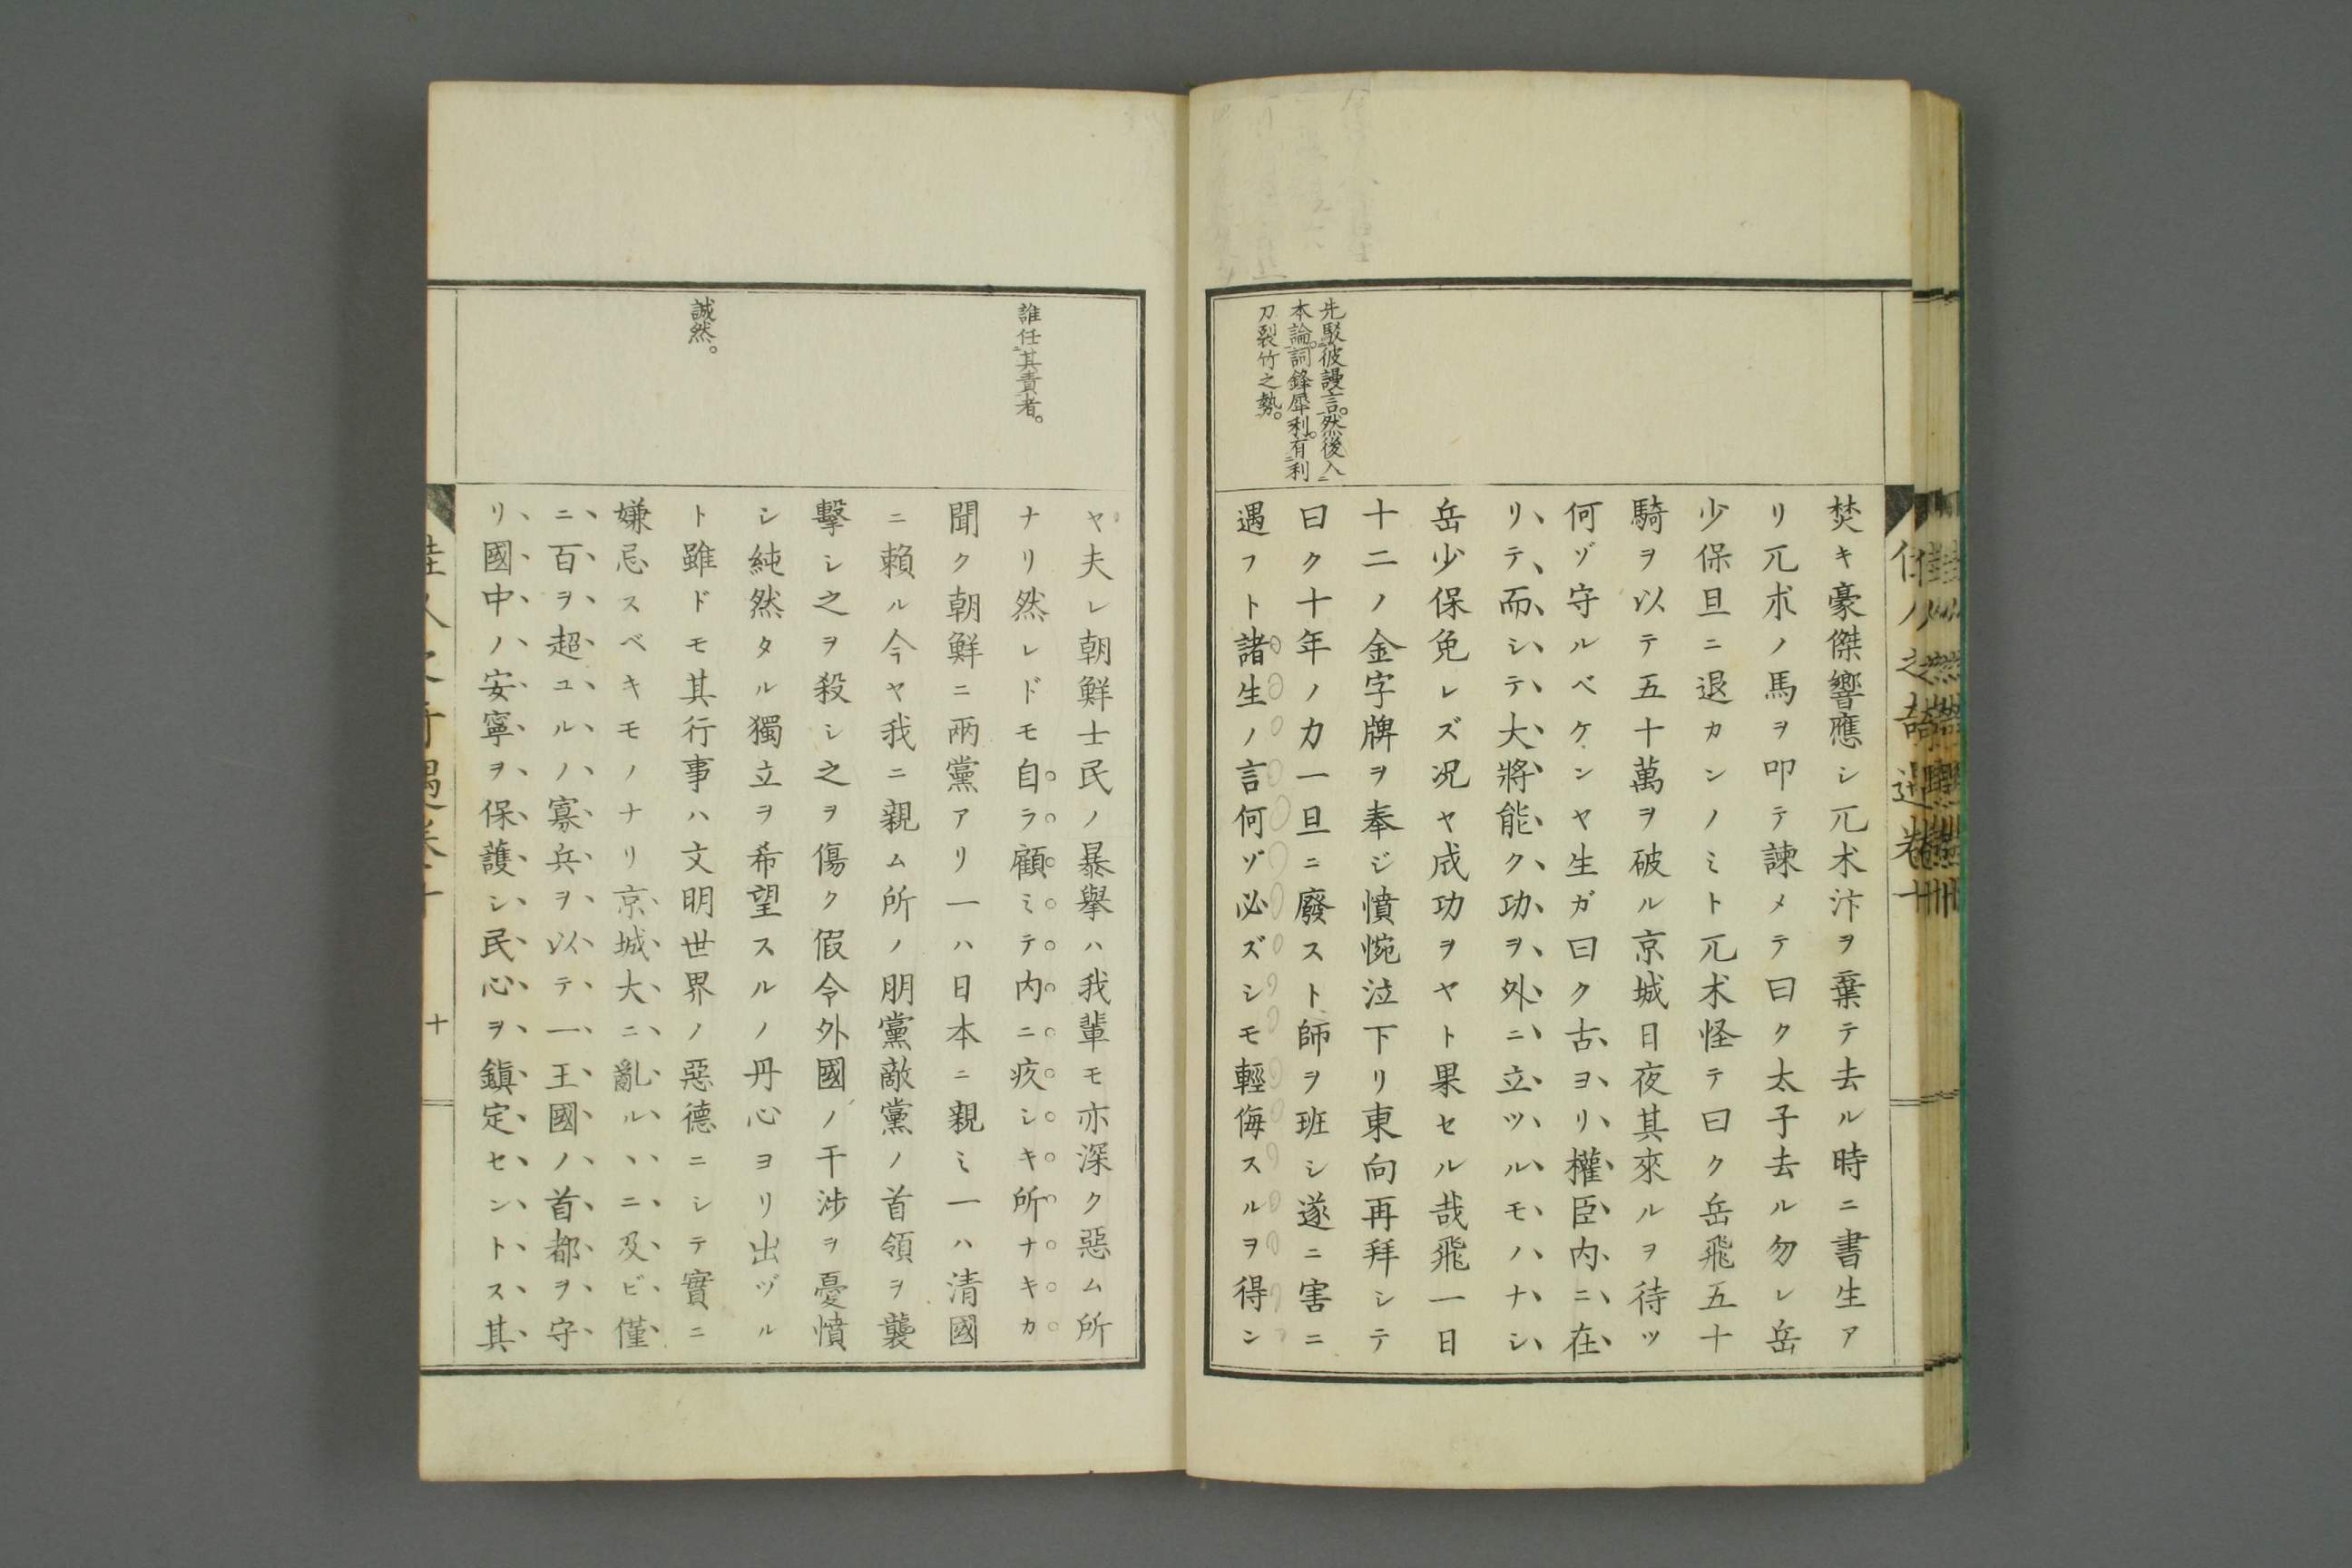 先駁彼謾言。然後入
本論。詞鋒犀利。有利
刀裂竹之勢。
焚キ豪傑響應シ兀朮汴ヲ棄テ去ル時ニ書生ア
リ兀朮ノ馬ヲ叩テ諫メテ曰ク太子去ル勿レ岳
少保旦ニ退カンノミト兀朮怪テ曰ク岳飛五十
騎ヲ以テ五十萬ヲ破ル京城日夜其來ルヲ待ツ
何ゾ守ルベケンヤ生ガ曰ク古ヨリ權臣内ニ在
リテ而シテ大將能ク功ヲ外ニ立ツルモハナシ
岳少保免レズ况ヤ成功ヲヤト果セル哉飛一日
十二ノ金字牌ヲ奉ジ憤惋泣下リ東向再拜シテ
曰ク十年ノ力一旦ニ廢スト師ヲ班シ遂ニ害ニ
遇フト諸生ノ言何ゾ必ズシモ輕侮スルヲ得ン
誰任其責者。
誠然。
ヤ夫レ朝鮮士民ノ暴擧ハ我輩モ亦深ク惡ム所
ナリ然レドモ自ラ顧ミテ内ニ疚シキ所ナキカ
聞ク朝鮮ニ兩黨アリ一ハ日本ニ親ミ一ハ清國
ニ賴ル今ヤ我ニ親ム所ノ朋黨敵黨ノ首領ヲ襲
擊シ之ヲ殺シ之ヲ傷ク假令外國ノ干涉ヲ憂憤
シ純然タル獨立ヲ希望スルノ丹心ヨリ出ヅル
ト雖ドモ其行事ハ文明世界ノ惡德ニシテ實ニ
嫌忌スベキモノナリ京城大ニ亂ルヽニ及ビ僅
ニ百ヲ超ユルノ寡兵ヲ以テ一王國ノ首都ヲ守
リ國中ノ安寧ヲ保護シ民心ヲ鎭定セントス其
十